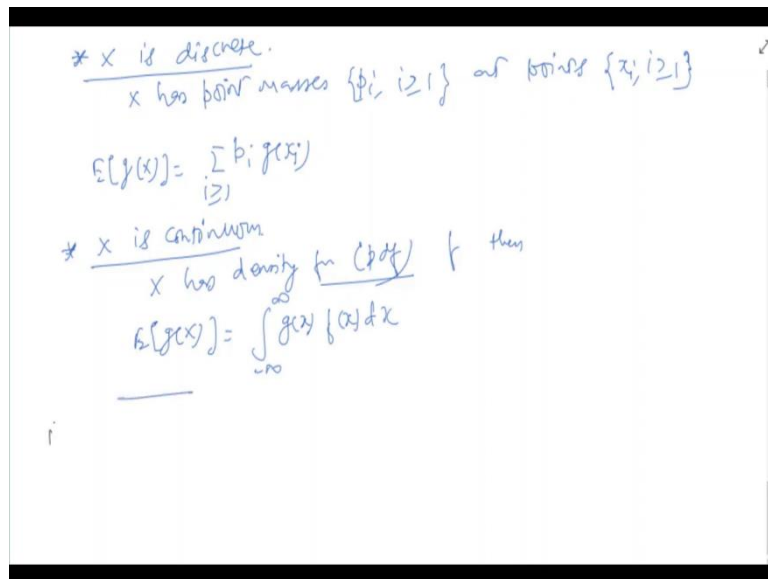 * X is discrete.
X has point masses {pᵢ, i≥1} at points {xᵢ, i≥1}
E[g(X)] = Σ pᵢ g(xᵢ)
i≥1
* X is continuous
X has density fn (pdf) f then
E[g(X)] = ∫_{-∞}^{∞} g(x) f(x) dx
i